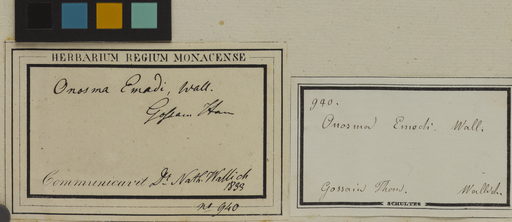 HERBARIUM REGIUM MONACENSE
Onosma Emodi, Wall.
Gossain Than
Communicavit Dr. Nath. Wallich
1833
no 940
940.
Onosma Emodi. Wall.
Gossain Than. Wallich.
SCHULTES